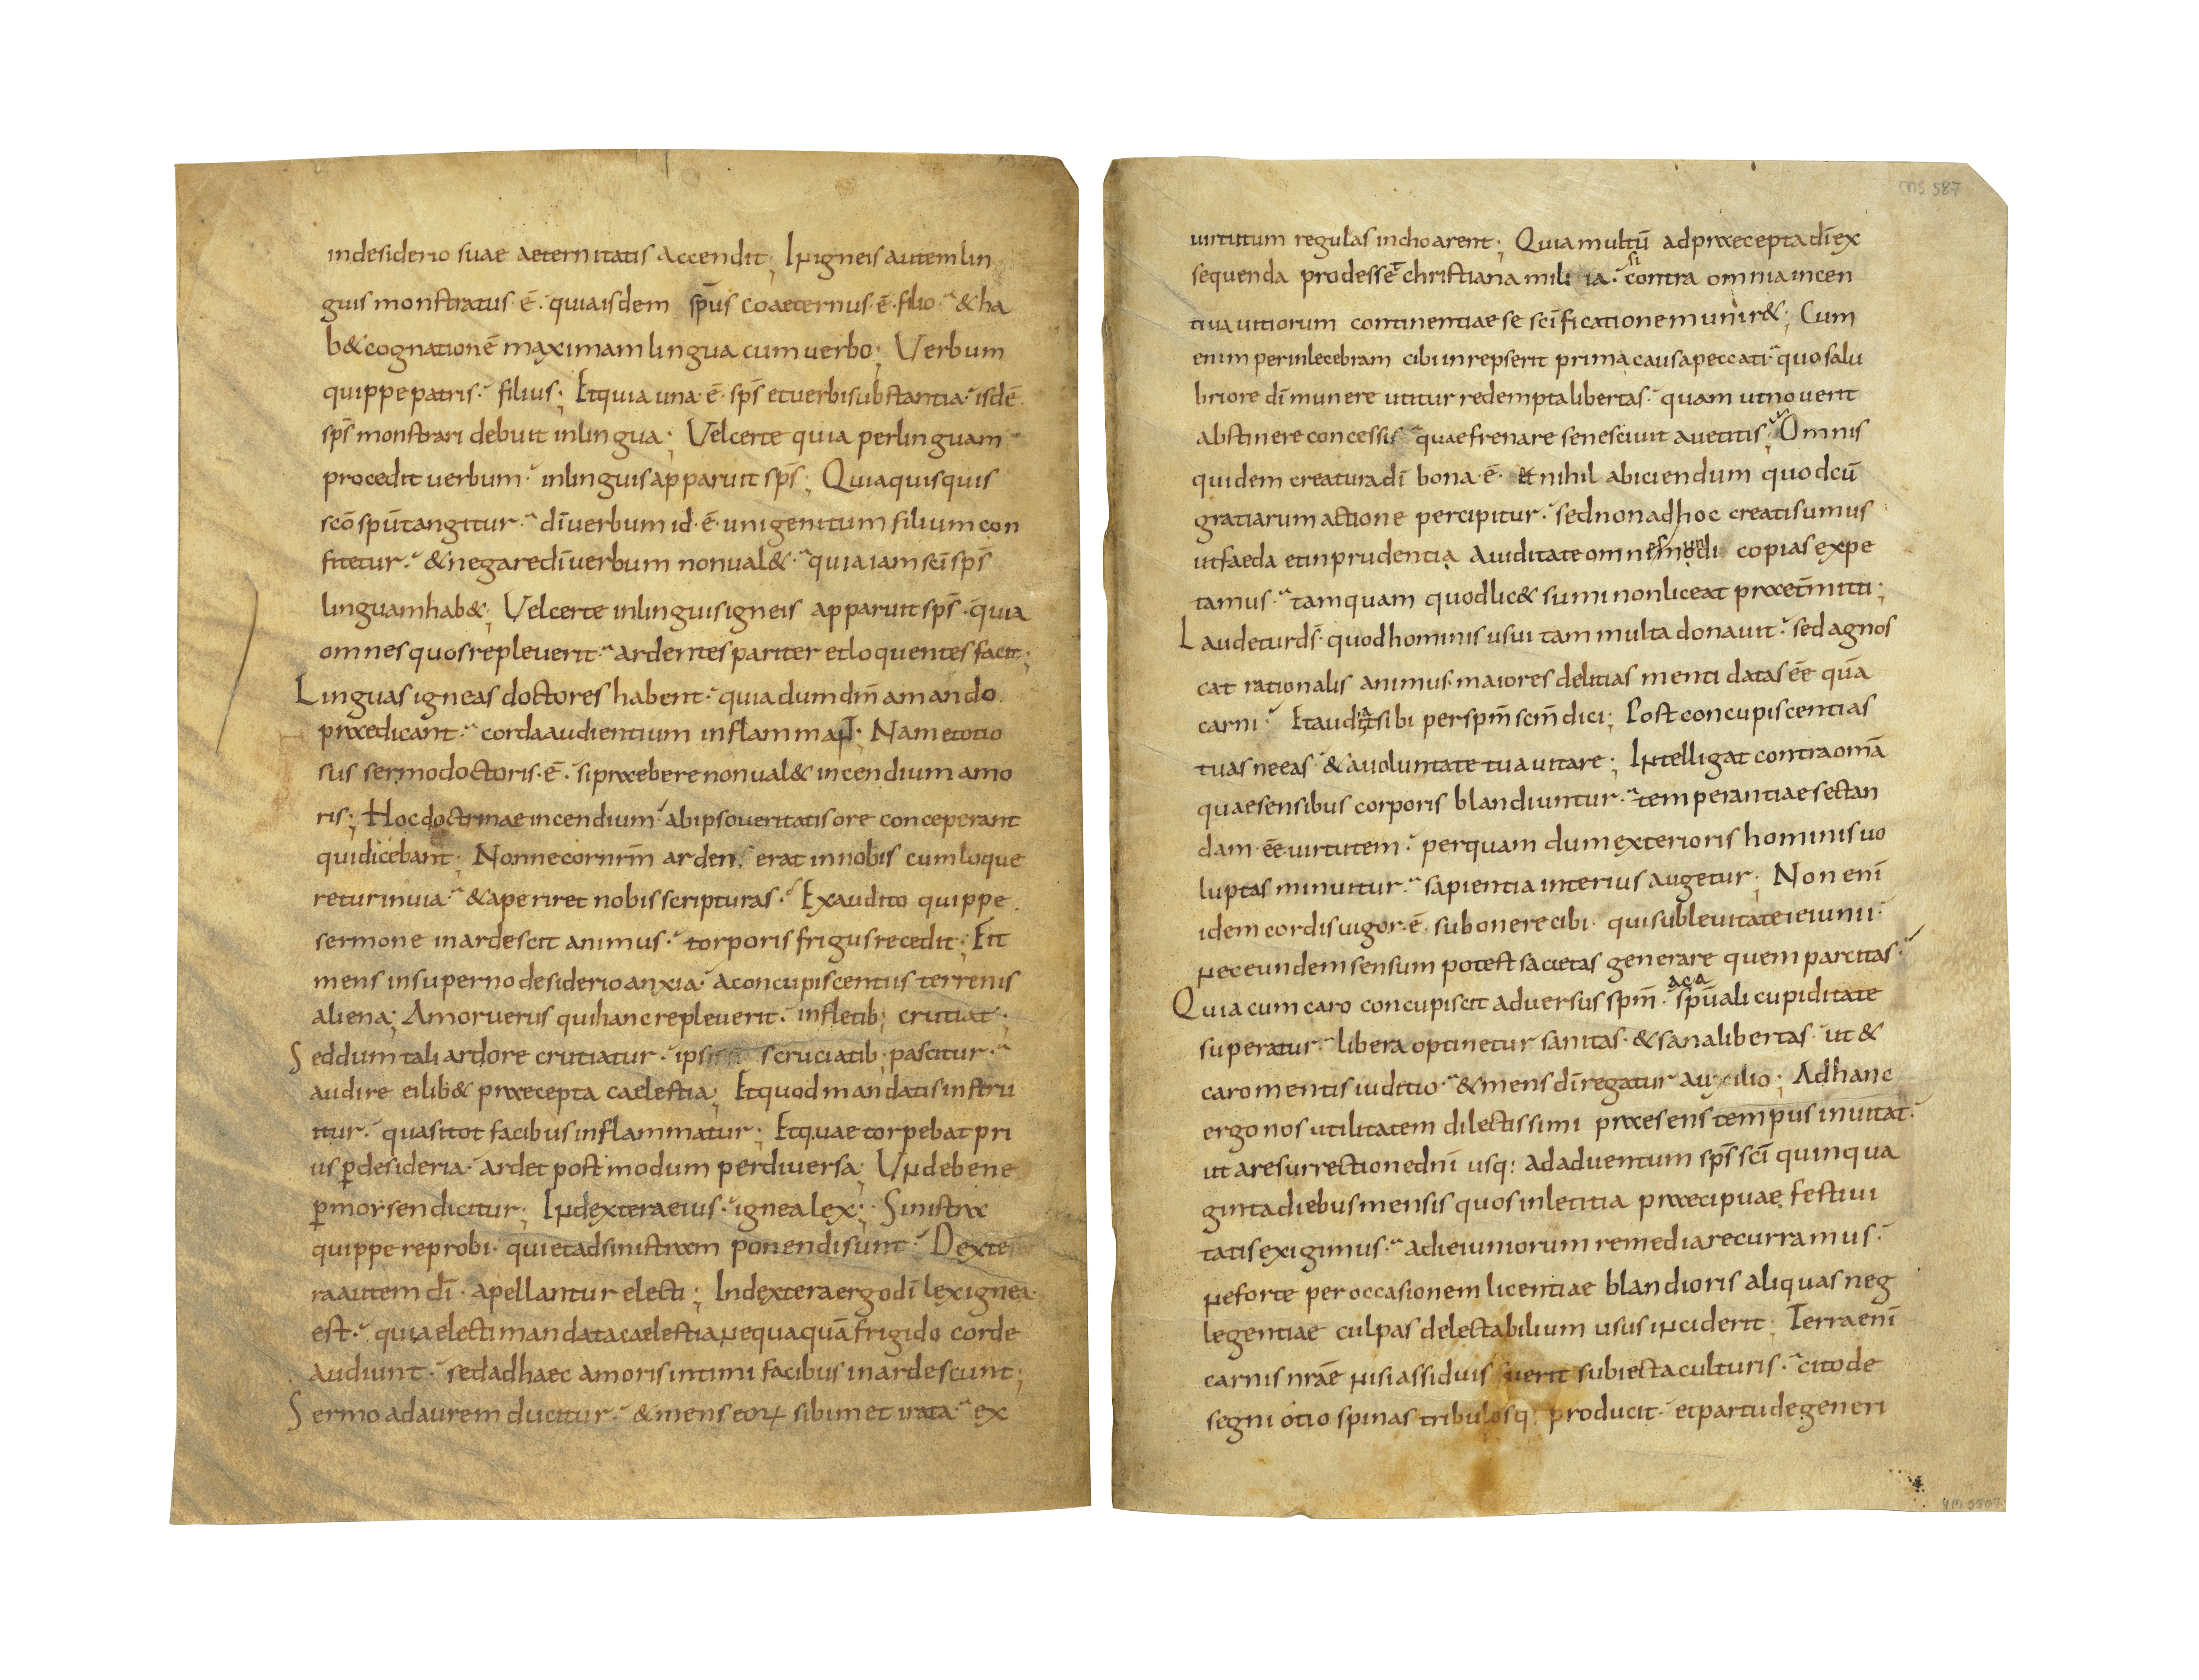 indesiderio suae aeternitatis accendit; Inigneis autemlin
guis monstratus·ē· quiaisdem sp̄us coaeternus·ē·filio· &ha
b&cognationē maximamlingua cumuerbo; Verbum
quippepatris· filius; Etquia una·ē·sp̄s etuerbisubstantia· isdē
sp̄s monstrari debuit inlingua; Velcerte quia perlinguam
procedit uerbum· inlinguisapparuit sp̄s; Quiaquisquis
sc̄o sp̄u tangitur· dīuerbum id·ē·unigenitum filium con
fitetur· &negaredīuerbum nonual&· quiaiam sc̄i sp̄s
linguamhab&; Velcerte inlinguisigneis apparuit sp̄s· quia
omnes quosrepleuerit· ardentespariter etloquentes facit;
Linguas igneas doctores habent· quia dum dm̄ amando
praedicant· cordaaudientium inflammant; Nam etotio
sus sermodoctoris·ē· sipraebere nonual& incendium amo
ris; Hoc doctrinae incendium abipsoueritatisore conceperant
quidicebant; Nonnecornr̄m ardens erat innobis cumloque
returinuia· &aperiret nobisscripturas· Exaudito quippe
sermone inardescit animus· torporis frigusrecedit; Fit
mens insuperno desiderioanxia· aconcupiscentiis terrenis
aliena; Amoruerus quihancrepleuerit· infletib; cruciat·
Seddum tali ardore cruciatur· ips scruciatib; pascitur·
audire eilib& praecepta caelestia; Etquod mandatisinstru
itur· quasitot facibusinflammatur; Etquae torpebat pri
us p̱desideria· ardet postmodum perdiuersa; Vndebene
p̱morsendicitur; Indexteraeius· ignealex; Sinistrae
quippe reprobi· quietadsinistram ponendisunt· Dexte
raautem dī· apellantur electi; Indexteraergodī lexignea
est· quiaelectimandatacaelestianequaquā frigido corde
audiunt· sedadhaec amorisintimi facibus inardescunt;
Sermo adaurem ducitur· &mens eoꝝ sibimet irata· ex
uirtutum regulas inchoarent; Quiamultū adpraeceptadīex
sequenda prodesset christiana mili ia· si contra omniaincen
tiuauitiorum continentiaese sc̄ificationemunir&; Cum
enim perinlecebram cibi inrepserit prima causapeccati· quosalu
briore dī munere utitur redemptalibertas· quam utnouerit
abstinereconcessis quaefrenare senesciuit auetitis; Omnis
quidem creaturadī bona·ē· &nihil abiciendum quodcū
gratiarumactione percipitur· sednonadhoc creatisumus
utfaeda etinprudentia auiditateomnes mundi copias expe
tamus· tamquam quodlic& suminonliceat praetermitti;
Laudeturds̄· quodhominisusui tam multa donauit· sedagnos
cat rationalis animus· maiores delitias menti datas ēē quā
carni· Etaudiat sibi perspm̄ scm̄ dici; Post concupiscentias
tuas neeas· &auoluntate tuauitare; Intelligat contraomā
quaesensibus corporis blandiuntur· temperantiaesectan
dam·ēē·uirtutem· perquam dumexterioris hominisuo
luptas minuitur· sapientia interius augetur; Non enī
idem cordisuigor·ē· subonere cibi· quisubleuitateieiunii·
neceundemsensum potest sacietas generare quem parcitas·
Quia cum caro concupiscit aduersus spm̄· aca sp̄uali cupiditate
superatur· libera optinetur sanitas· &sanalibertas· ut&
caromentis iuditio· &mens dīregatur auxilio; Adhanc
ergo nos utilitatem dilectissimi praesenstempus inuitat·
ut aresurrectionednī usq; adaduentum sp̄s sc̄i quinqua
gintadiebusmensis quosinletitia praecipuae festiui
tatis exigimus· adieiuniorum remediarecurramus·
neforte per occasionem licentiae blandioris aliquas neg
legentiae culpas delectabilium usus inciderit; Terraenī
carnis nr̄ae nisiassiduis fuerit subiectaculturis· citode
segni otio spinas tribulosq; producit· etpartudegeneri
ms 587